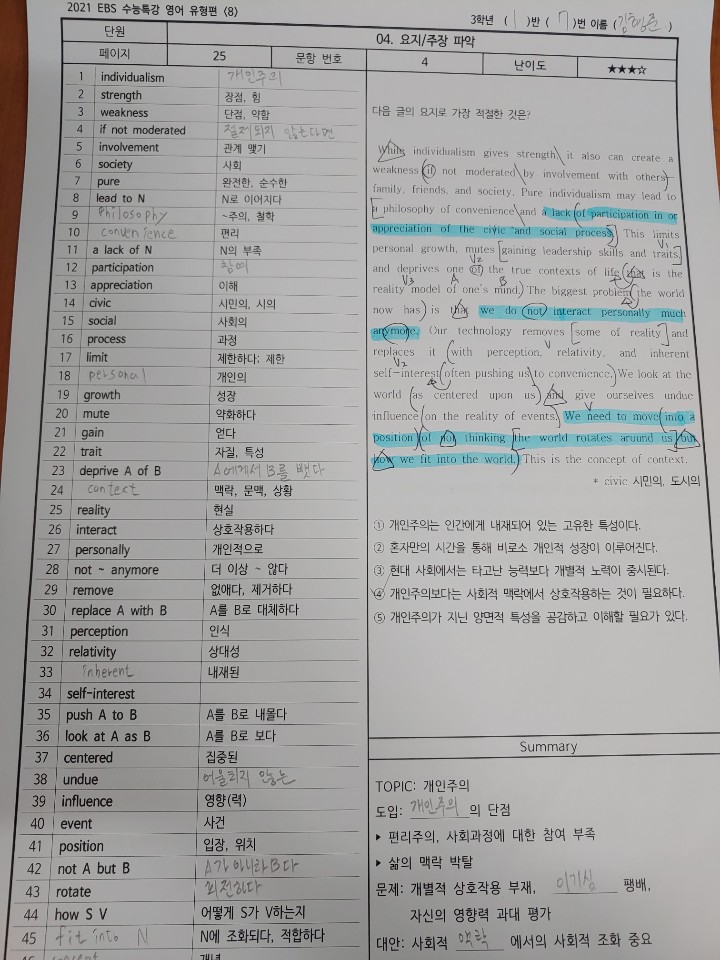 2021 EBS 수능특강 영어 유형편 <8>
3학년 ( 1 )반 ( 7 )번 이름 ( )
단원 04. 요지/주장 파악
페이지 25 문항 번호 4 난이도 ★★★☆
1 individualism 개인주의
2 strength 장점, 힘
3 weakness 단점, 약함
4 if not moderated 절제되지 않는다면
5 involvement 관계 맺기
6 society 사회
7 pure 완전한, 순수한
8 lead to N N로 이어지다
9 Philosophy ~주의, 철학
10 convenience 편리
11 a lack of N N의 부족
12 participation 참여
13 appreciation 이해
14 civic 시민의, 시의
15 social 사회의
16 process 과정
17 limit 제한하다; 제한
18 personal 개인의
19 growth 성장
20 mute 약화하다
21 gain 얻다
22 trait 자질, 특성
23 deprive A of B A에게서 B를 뺏다
24 context 맥락, 문맥, 상황
25 reality 현실
26 interact 상호작용하다
27 personally 개인적으로
28 not ~ anymore 더 이상 ~ 않다
29 remove 없애다, 제거하다
30 replace A with B A를 B로 대체하다
31 perception 인식
32 relativity 상대성
33 inherent 내재된
34 self-interest
35 push A to B A를 B로 내몰다
36 look at A as B A를 B로 보다
37 centered 집중된
38 undue 어울리지 않는
39 influence 영향(력)
40 event 사건
41 position 입장, 위치
42 not A but B A가 아니라 B다
43 rotate 회전하다
44 how S V 어떻게 S가 V하는지
45 fit into N N에 조화되다, 적합하다
다음 글의 요지로 가장 적절한 것은?
While individualism gives strength, it also can create a
weakness if not moderated by involvement with others,
family, friends, and society. Pure individualism may lead to
a philosophy of convenience and a lack of participation in or
appreciation of the civic *and social process. This limits
V₁
personal growth, mutes gaining leadership skills and traits,
V₂
and deprives one of the true contexts of life that is the
V₃ A B
reality model of one's mind. The biggest problem the world
now has is that we do not interact personally much
anymore. Our technology removes some of reality and
V₂ V
replaces it with perception, relativity, and inherent
self-interest often pushing us to convenience. We look at the
world as centered upon us and give ourselves undue
influence on the reality of events. We need to move into a
position of not thinking the world rotates around us but
how we fit into the world. This is the concept of context.
* civic 시민의, 도시의
① 개인주의는 인간에게 내재되어 있는 고유한 특성이다.
② 혼자만의 시간을 통해 비로소 개인적 성장이 이루어진다.
③ 현대 사회에서는 타고난 능력보다 개별적 노력이 중시된다.
④ 개인주의보다는 사회적 맥락에서 상호작용하는 것이 필요하다.
⑤ 개인주의가 지닌 양면적 특성을 공감하고 이해할 필요가 있다.
Summary
TOPIC: 개인주의
도입: 개인주의 의 단점
▸ 편리주의, 사회과정에 대한 참여 부족
▸ 삶의 맥락 박탈
문제: 개별적 상호작용 부재, 이기심 팽배,
자신의 영향력 과대 평가
대안: 사회적 맥락 에서의 사회적 조화 중요